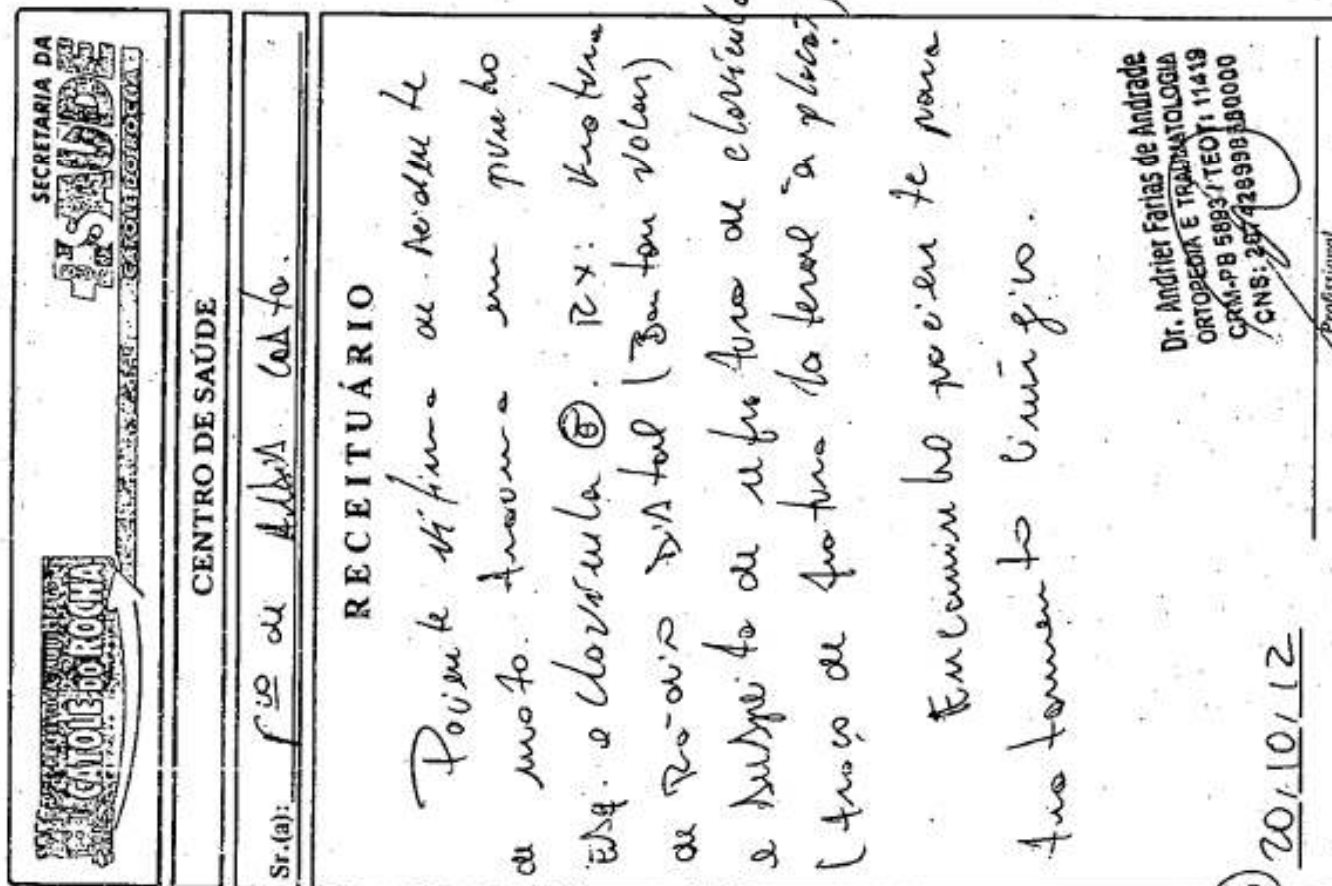 CATOLÉ DO ROCHA
SECRETARIA DA
SAÚDE
CATOLÉ DO ROCHA
CENTRO DE SAÚDE
Sr.(a): fco de Assis
RECEITUÁRIO
Paciente vítima de acidente
de moto. trauma em punho
Esq. e clavícula Ⓔ. Rx: fratura
de Rádio Distal (Barton volar)
e suspeita de refratura de clavícula
(traço de fratura lateral à placa)
Encaminho paciente para
tratamento cirúrgico.
Dr. Andrier Farias de Andrade
ORTOPEDIA E TRAUMATOLOGIA
CRM-PB 5893 / TEOT: 11419
CNS:
Profissional
20/10/12